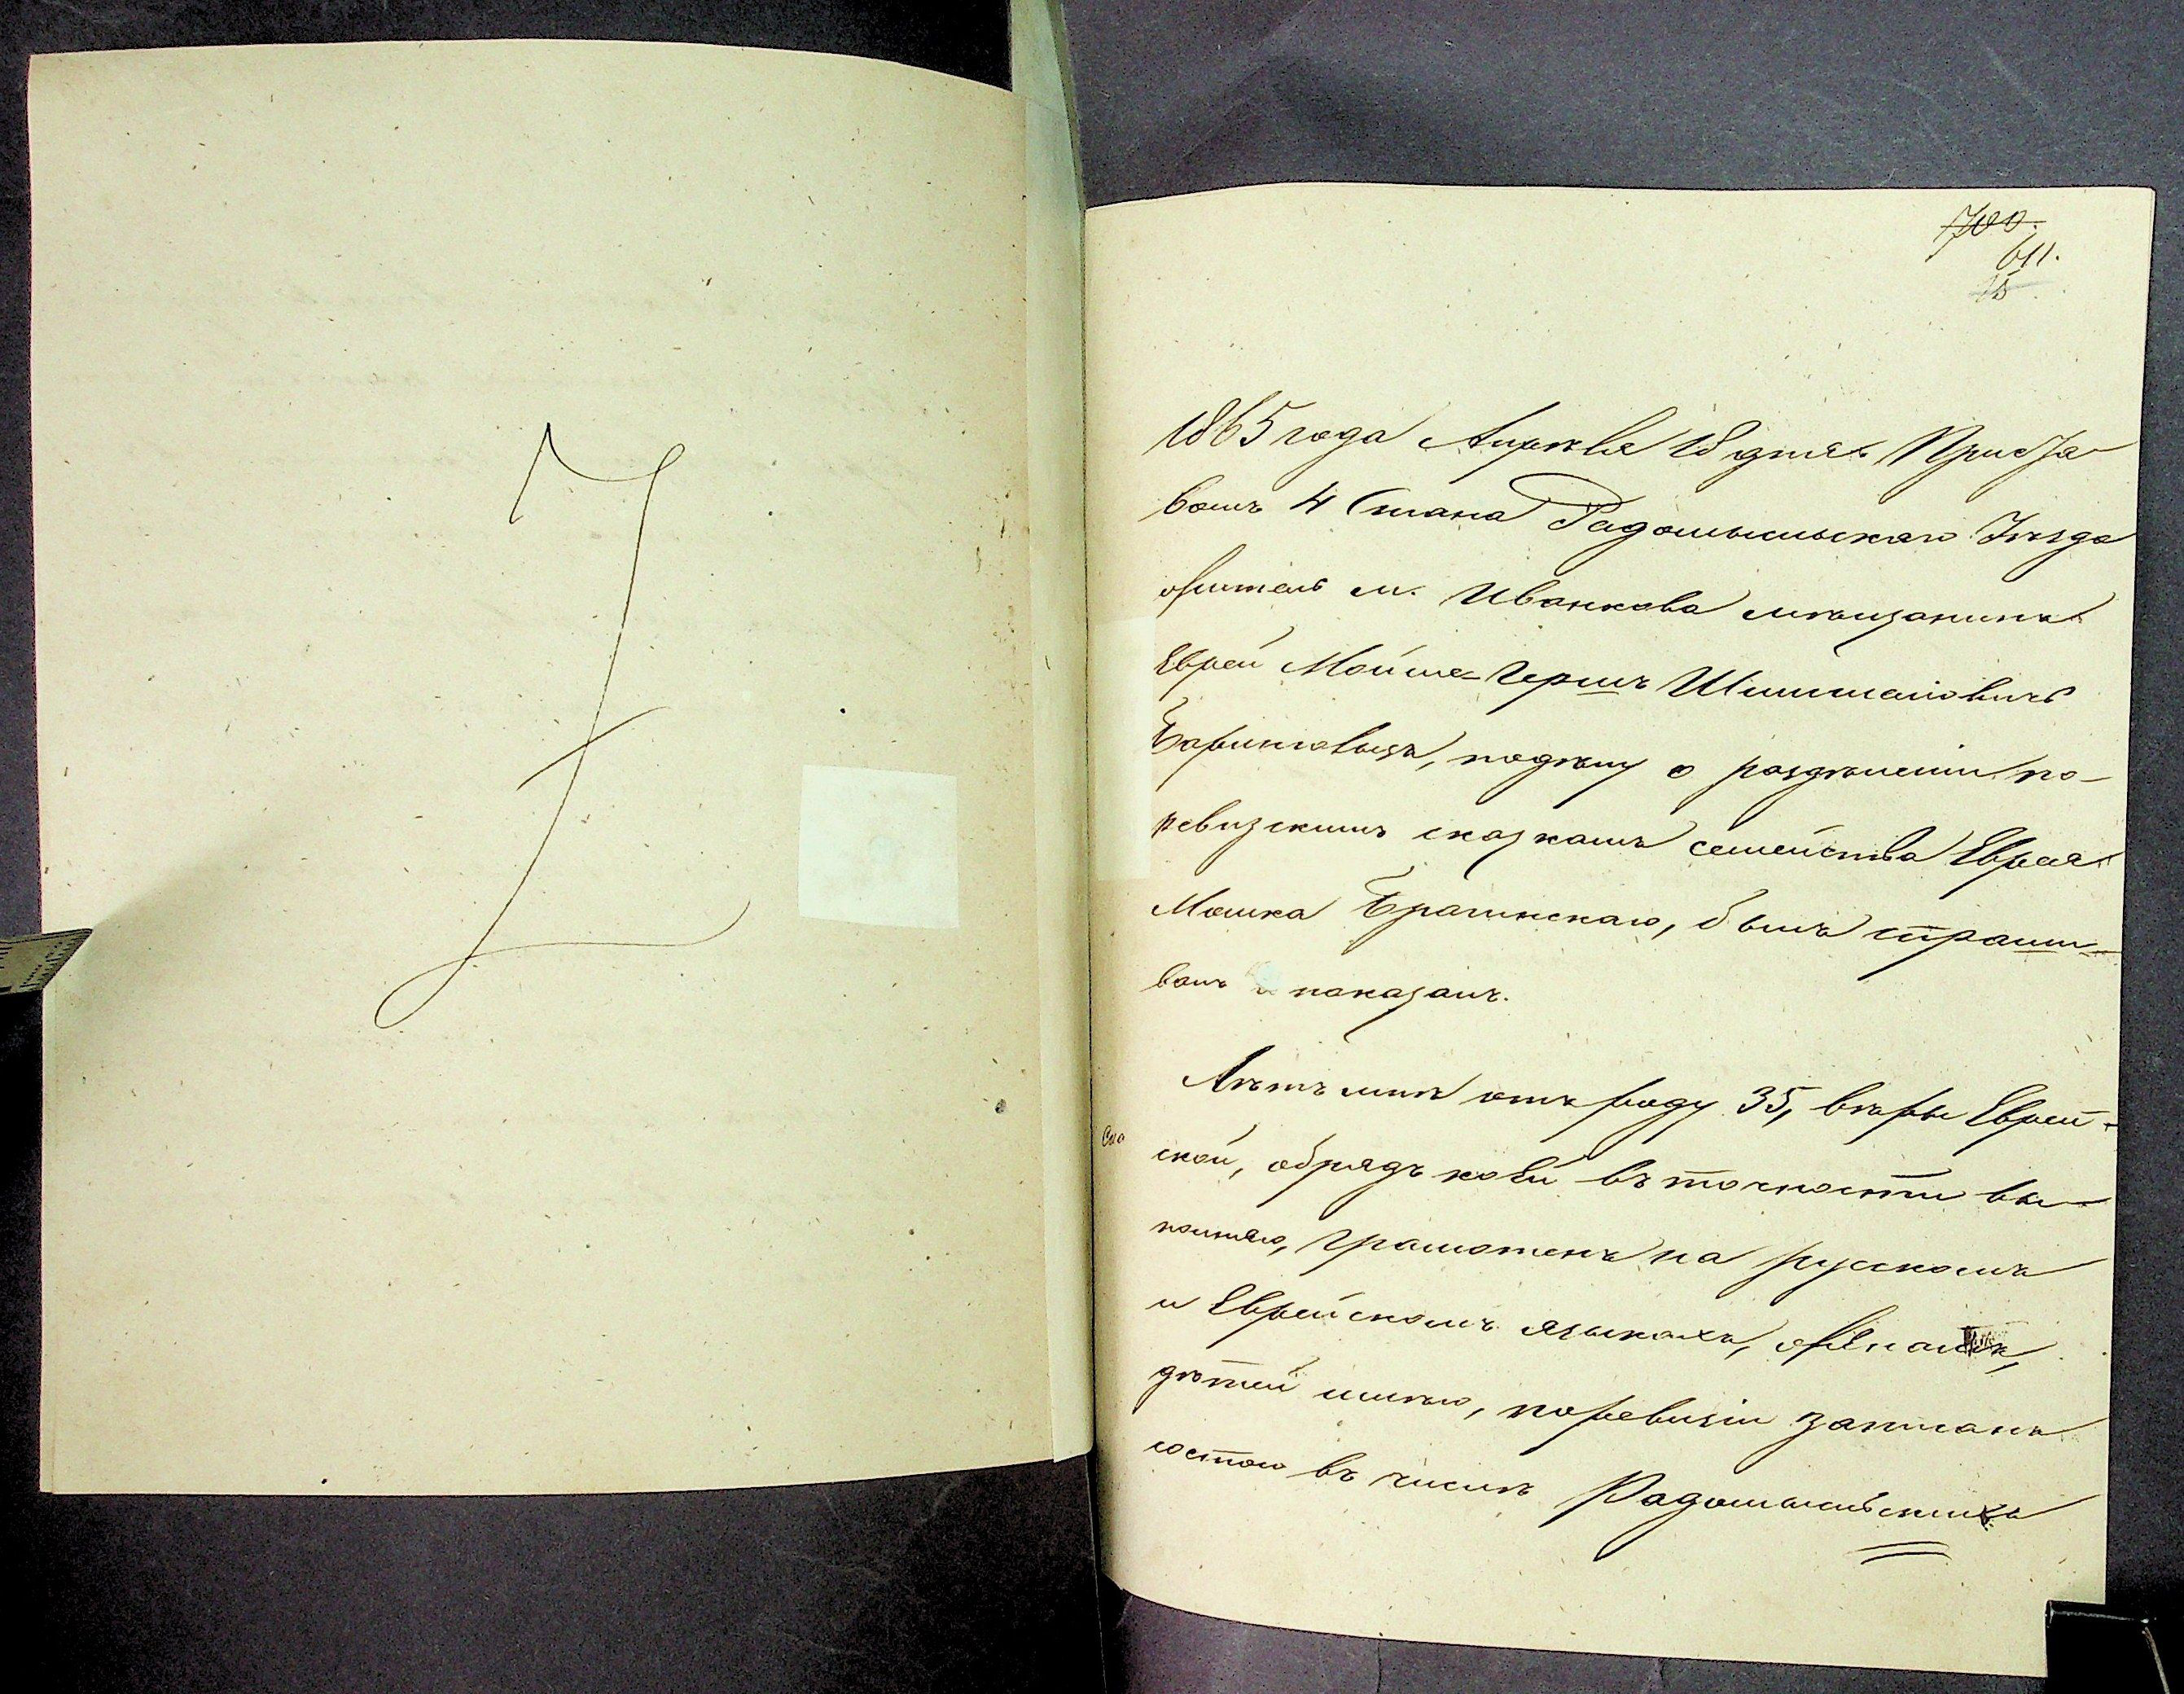 700.
611.
15
1865 года Апрѣля 18 дня Приста
вомъ 4 Стана Радомысльскаго Уѣзда
житель м. Иванкова мѣщанинъ
Еврей Мойше-Гершъ Шимшоновичъ
по дѣлу о раздѣленіи по
ревизскимъ сказкамъ семейства Еврея
Мошка Брагинскаго, былъ спраши-
ванъ и показалъ.
Лѣтъ мнѣ отъ роду 35, вѣры Еврей-
ской, обрядъ коей въ точности вы
полняю, грамотенъ на русскомъ
и Еврейскомъ языкахъ, женатъ,
дѣтей имѣю, по ревизіи записанъ
состою въ числѣ Радомысльскихъ